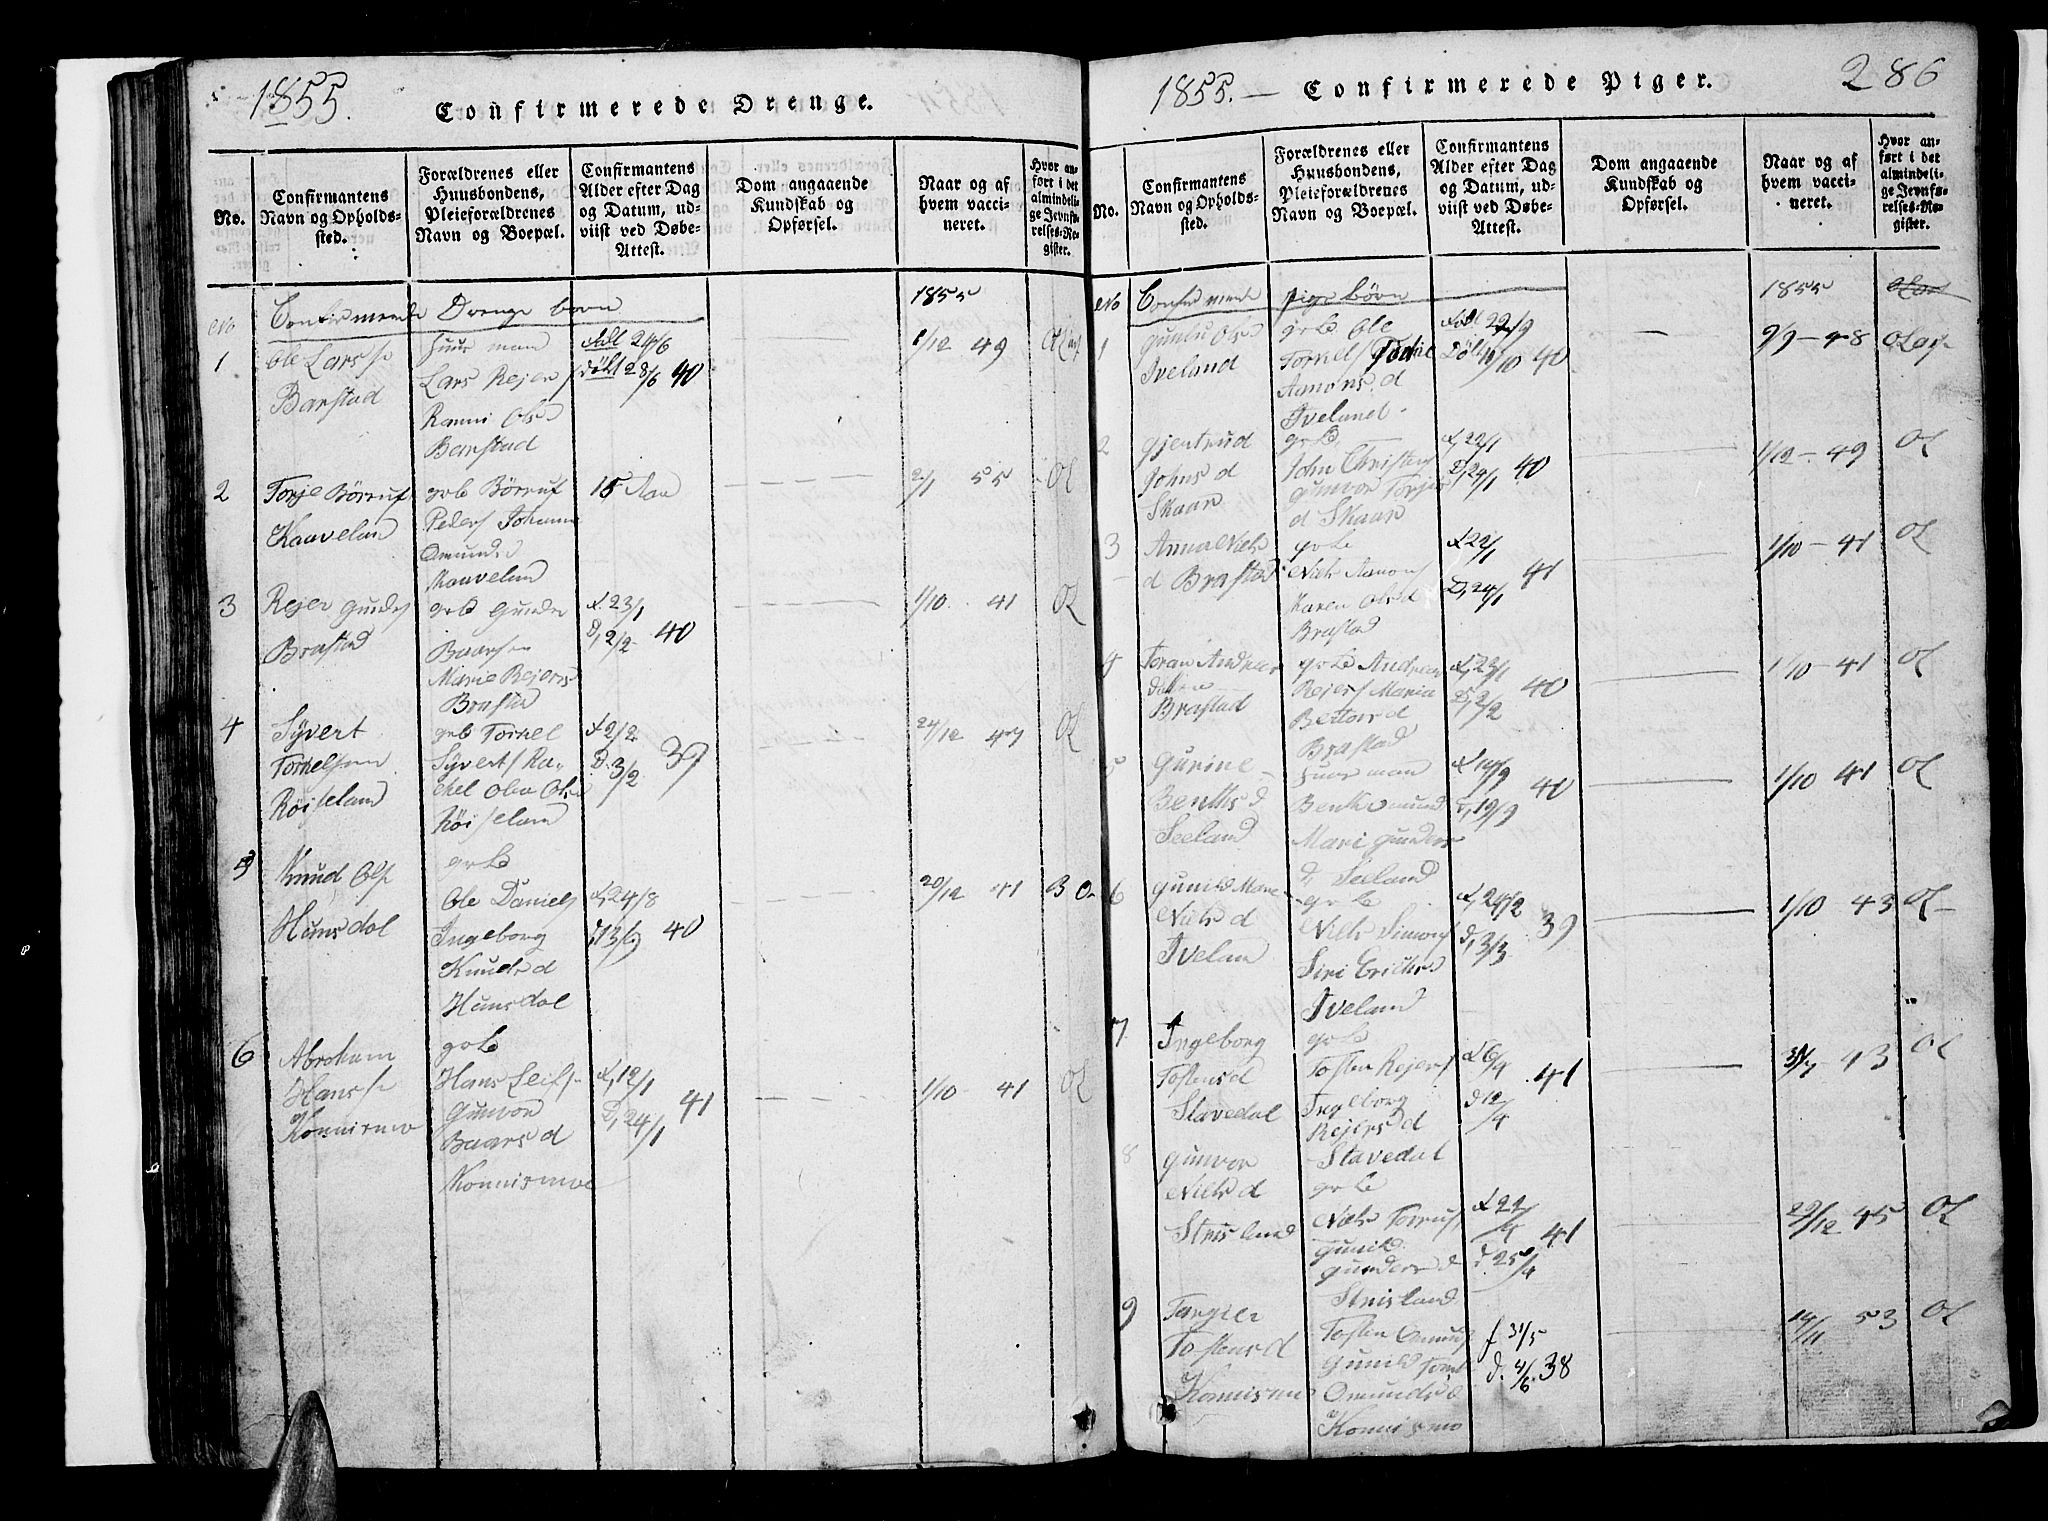 1855. Confirmerede Drenge.
No.
Confirmantens Navn og Opholds-sted.
Forældrenes eller Huusbondens, Pleieforældrenes Navn og Boepæl.
Confirmantens Alder efter Dag og Datum, ud-viist ved Døbe-Attest.
Dom angaaende Kundskab og Opførsel.
Naar og af hvem vacci-neret.
Hvor an-ført i det almindeli-ge Jevnfø-relses-Re-gister.
No Confirmerede Drenge børn 1855
1 Ole Larss
Barstad
Huusmand
Lars Rejers
Ranni Ols
Barstad
født 24/6
døbt 28/6 40
1/12 49
2 Torje
gvb
Peders Johann
Omunds
15 Aar
2/1 55
Ol
3 Rejer Gunders
Brastad
gvb Gunder
Baarsen
Marie Rejers
Brastad
f. 23/1
d, 2/2 40
1/10 41
Ol
4 Syvert
Tornelsen
Røiseland
gvb Tornel
Syverts Ra-
chel Olsd
Røiseland
f 2/2
d. 3/2 37
24/12 47
Ol
5 Knud Ols
Hunsdal
gvb
Ole Daniels
Ingeborg
Knuds d
Hunsdal
f, 24/8
d 13/9 40
20/12 41
6 Abraham
Hanss
Konnismo
gvb
Hans Leifs
Gunvor
Baars d
Konnismoe
f, 12/1
d, 24/1 41
1/10 41
Ol
1855. — Confirmerede Piger. 286
No.
Confirmantens Navn og Opholds-sted.
Forældrenes eller Huusbondens, Pleieforældrenes Navn og Boepæl.
Confirmantens Alder efter Dag og Datum, ud-viist ved Døbe-Attest.
Dom angaaende Kundskab og Opførsel.
Naar og af hvem vacci-neret.
Hvor an-ført i det almindeli-ge Jevnfø-relses-Re-gister.
No pige børn 1855
1 Ols
Iveland
gvb Ole
Tornels
Aanons d
Iveland
født 22/9
Døbt 11/10 40
9/9 - 48
2 Gjertrud
Johns d
Skaar
gvb
John Christens
Gunvor Torjers
d Skaar
f, 22/1
d, 24/1 40
1/12 - 49
Ol
3 Anna Niels
d Brastad
gvb
Niels Aanons
Karen Olsd
Brastad
f 22/1
D, 24/1 41
1/10 - 41
Ol
4 Andreas
Brastad
gvb Andreas
Rejers Maria
d
Brastad
f, 23/1
d, 2/2 40
1/10 - 41
Ol
5 Gurine
Bents d
Seeland
Huusmand
Bent
Mari Gunders
d Seeland
f 14/9
d, 19/9 40
1/10 41
Ol
6 Gunild Marie
Niels d
Iveland
gvb
Niels Simons
Siri Erichs d
Iveland
f, 24/2
d, 3/3 39
1/10 43
Ol
7 Ingeborg
Tostens d
Stavedal
gvb
Tosten Rejers
Ingeborg
Rejers d
Stavedal
f 6/4
d 12/4 41
43
Ol
8 Gunvor
Niels d
Strisland
gvb
Niels
Gunild
Gunders d
Strisland
f 22/4
d 25/4 41
29/12 45
Ol
9 Targier
Tostens d
Konnismo
Tosten Omunds
Gunild
Omunds d
Konnismo
f 31/5
d. 4/6. 38
14/11 53
Ol